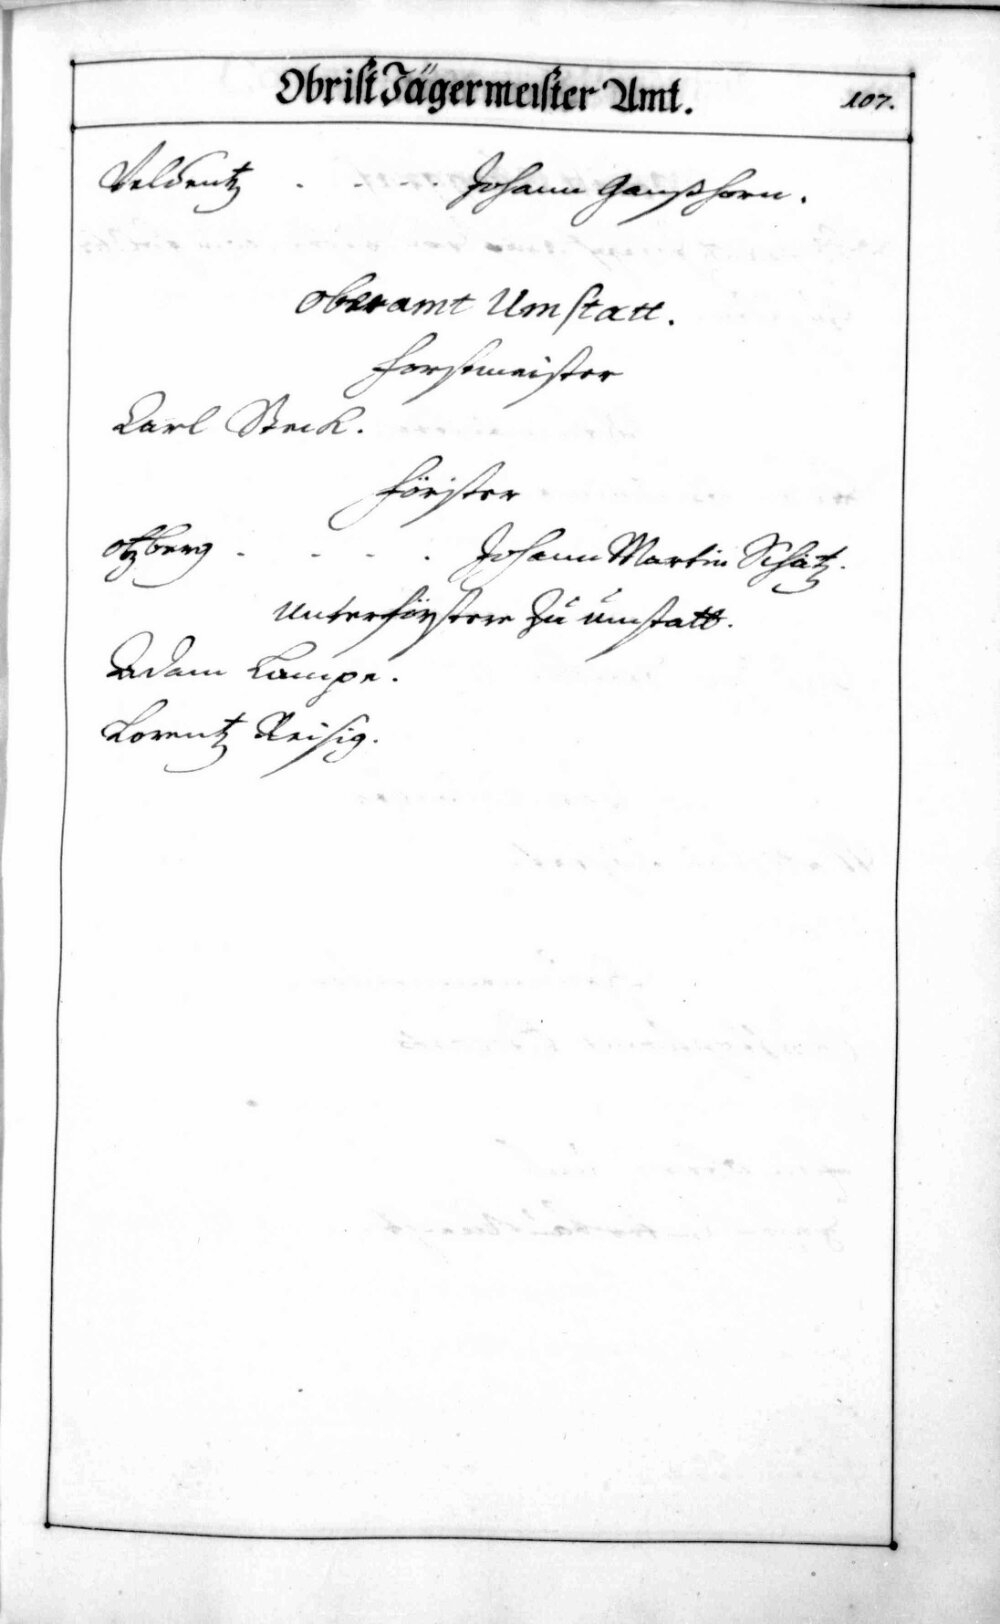 Obrist Jägermeister Amt. 107.
Veldentz . . . Johann Ganßhorn.
Oberamt Umstatt.
Forstmeister
Carl Steck.
Förster
Otzberg . . . . Johann Martin Schätz.
Unterförstere zu Umstatt.
Adam Lampe.
Lorentz Reisig.